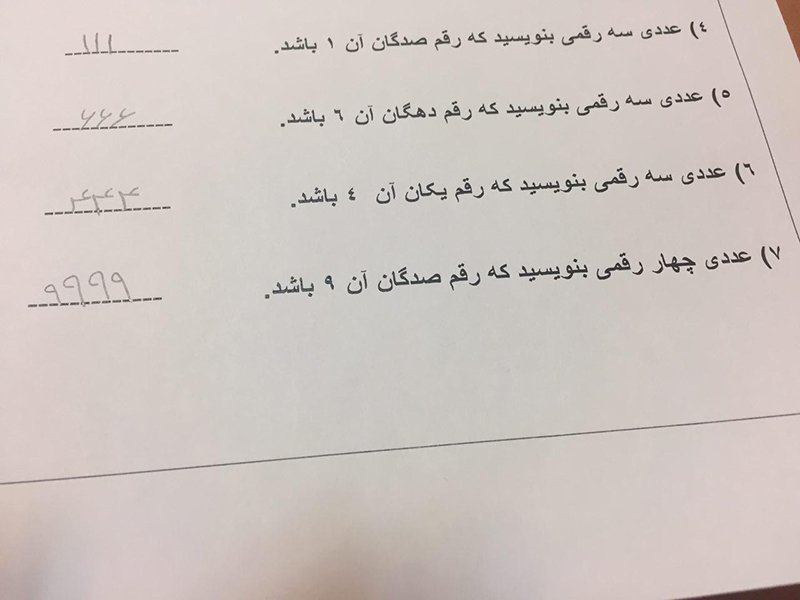 ۴) عددی سه رقمی بنویسید که رقم صدگان آن ۱ باشد. ۱۱۱
۵) عددی سه رقمی بنویسید که رقم دهگان آن ۶ باشد. ۶۶۶
۶) عددی سه رقمی بنویسید که رقم یکان آن ۴ باشد. ۴۴۴
۷) عددی چهار رقمی بنویسید که رقم صدگان آن ۹ باشد. ۹۹۹۹